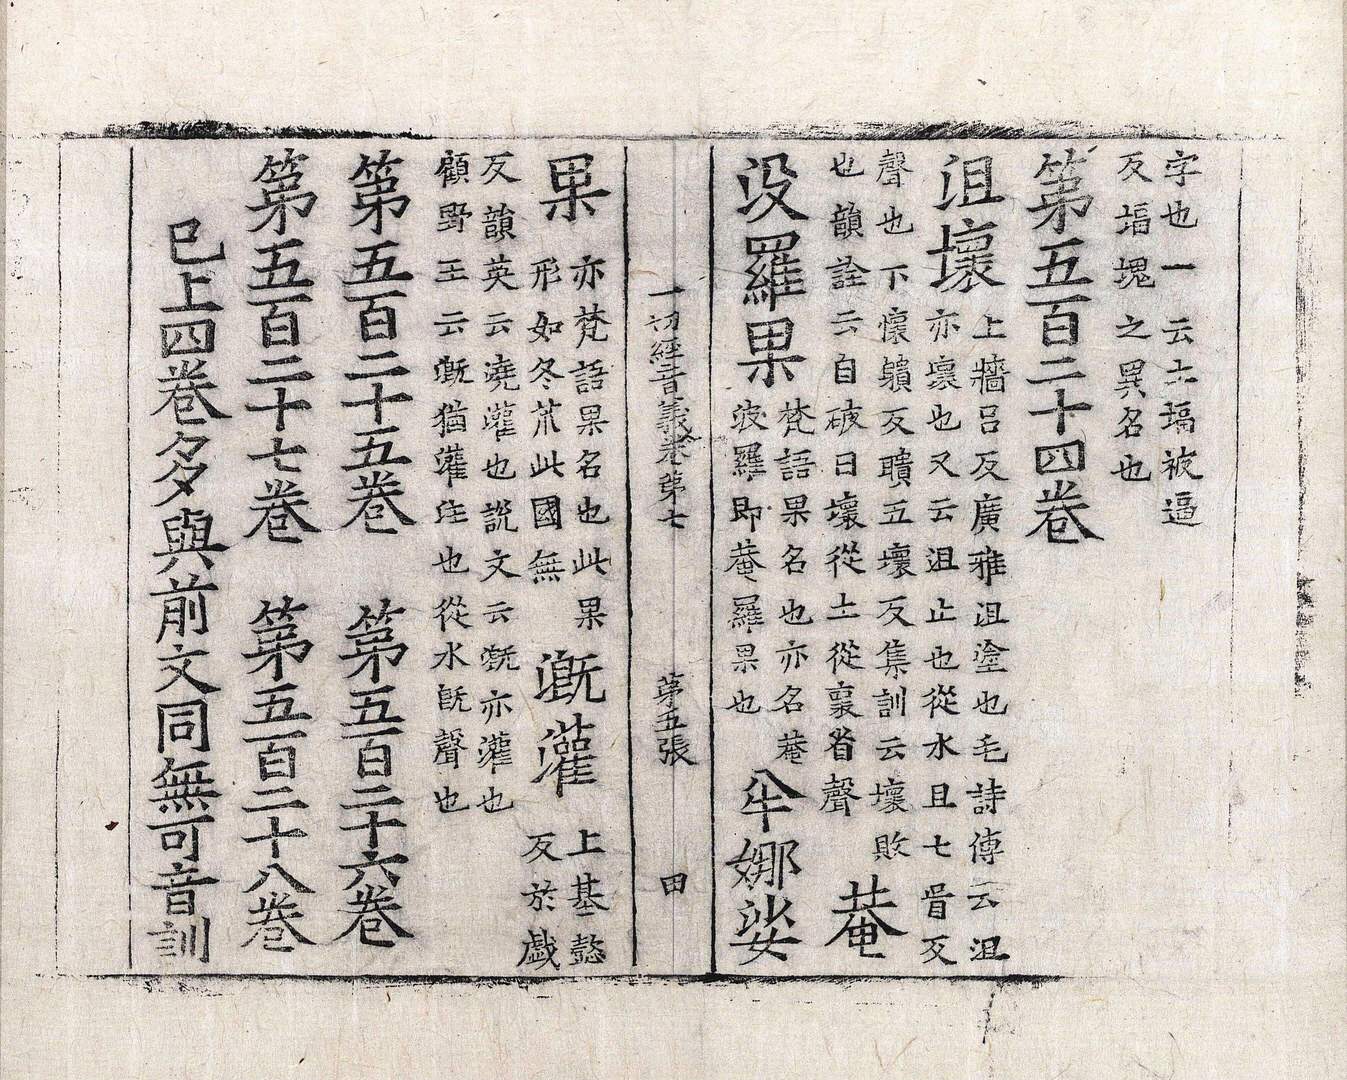 字也一云土塥被逼
反塥塊之異名也
第五百二十四卷
沮壞
上牆呂反廣雅沮塗也毛詩傳云沮
亦壞也又云沮止也從水且七胥反
聲也下懷聵反聵五壞反集訓云壞敗
也韻詮云自破曰壞從土從褱省聲
菴
没羅果
梵語果名也亦名菴
波羅即菴羅果也
半娜娑
一切經音義卷第七
第五張
甲
果
亦梵語果名也此果
形如冬苽此國無
溉灌
上基懿
反於戲
反韻英云澆灌也説文云溉亦灌也
顧野王云溉猶灌注也從水旣聲也
第五百二十五卷 第五百二十六卷
第五百二十七卷 第五百二十八卷
已上四卷多與前文同無可音訓